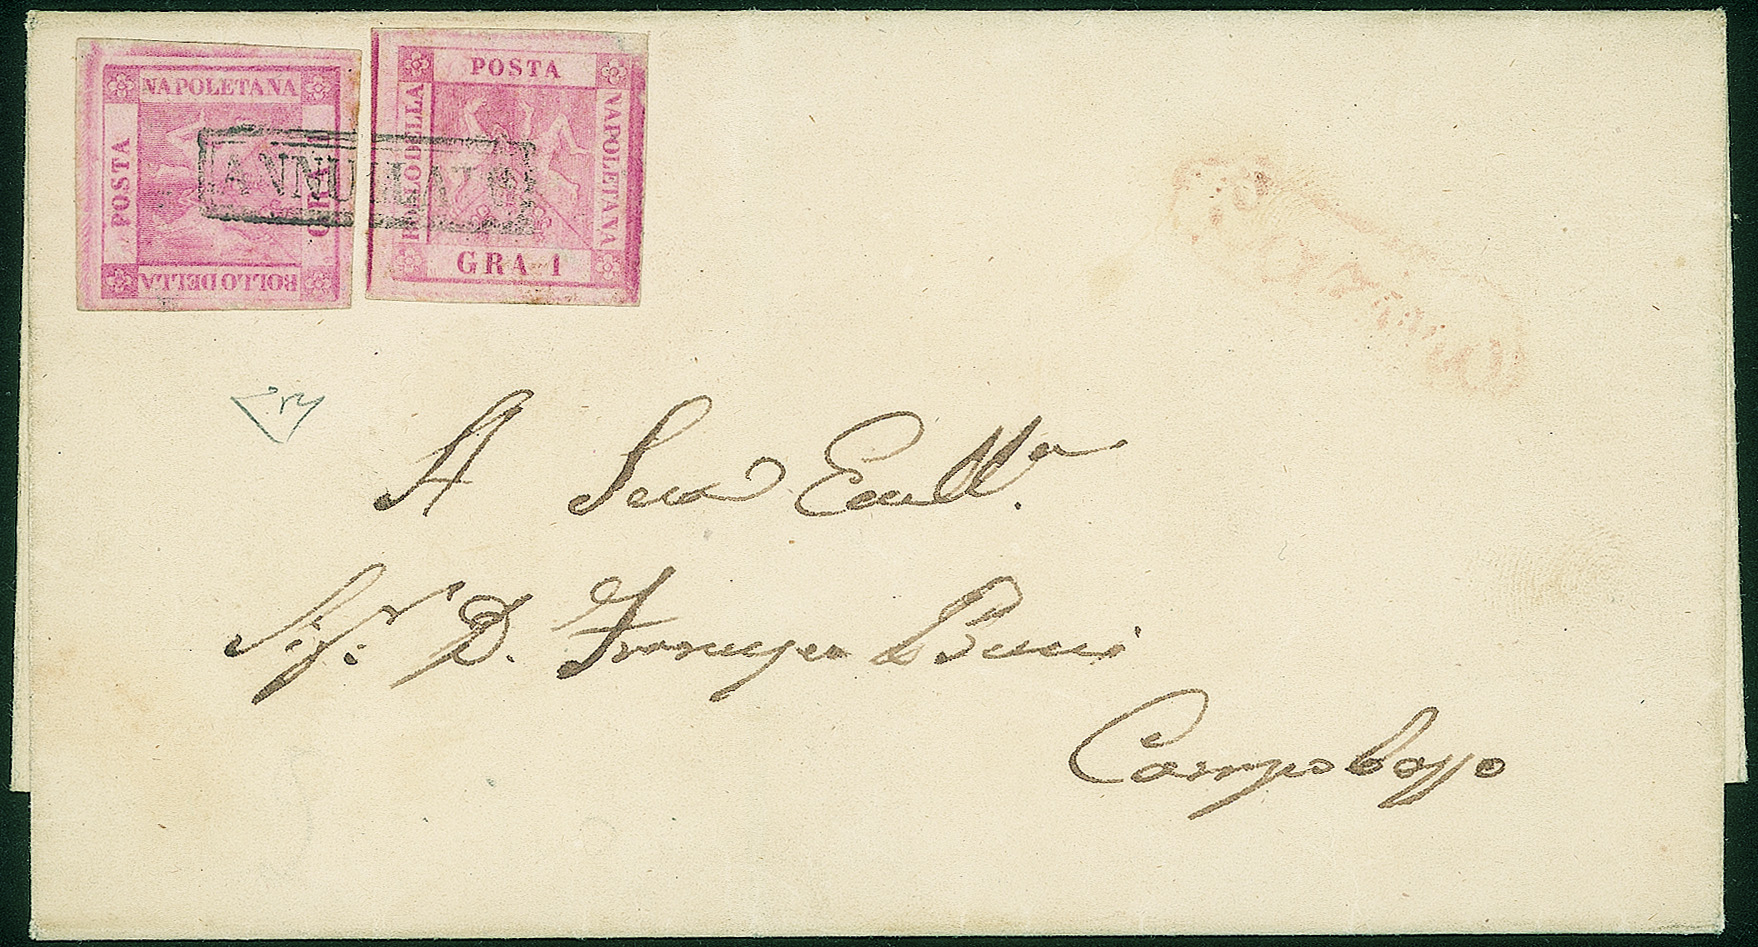 NAPOLETANA
POSTA
GRA
BOLLO DELLA
POSTA
BOLLO DELLA
NAPOLETANA
GRA 1
ANNULLATO
A Sua Eccll.a
Sig.r D. Francesco
Campobasso